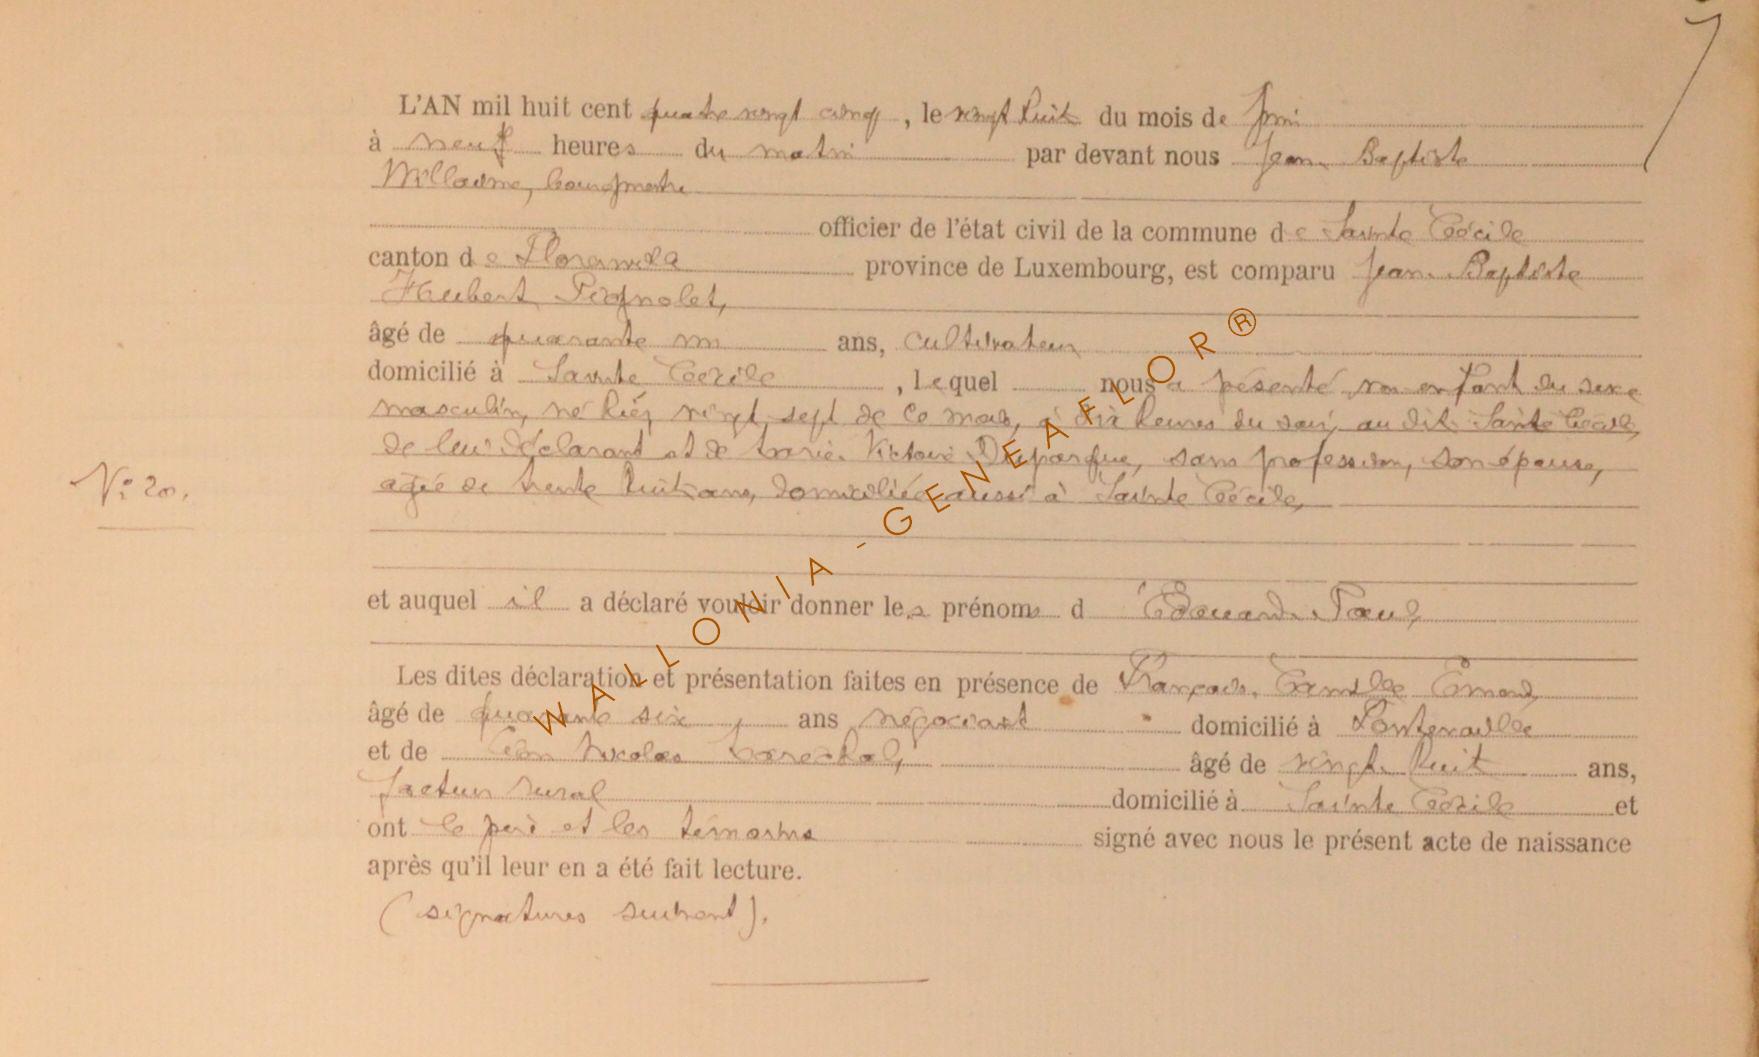 L'AN mil huit cent quatre vingt cinq, le vingt huit du mois de Juin
à neuf heures du matin par devant nous Jean Baptiste
Willaume, bourgmestre
officier de l'état civil de la commune de Sainte Cécile
canton de Florenville province de Luxembourg, est comparu Jean Baptiste
Hubert Pignolet,
âgé de quarante un ans, cultivateur
domicilié à Sainte Cécile, Lequel nous a présenté un enfant du sexe
masculin, né hier, vingt sept de ce mois, à dix heures du soir, au dit Sainte Cécile,
de lui déclarant et de Marie Victoire Duparque, sans profession, son épouse,
N° 20.
agée de trente huit ans, domiciliée aussi à Sainte Cécile,
et auquel il a déclaré vouloir donner les prénoms d Edouard Paul,
Les dites déclaration et présentation faites en présence de François Camille Emond,
âgé de quarante six, ans négociant domicilié à Fontenoille
et de Léon Nicolas Maréchal, âgé de vingt huit ans,
facteur rural domicilié à Sainte Cécile et
ont le père et les témoins signé avec nous le présent acte de naissance
après qu'il leur en a été fait lecture.
(signatures suivent).
WALLONIA-GENEAFLOR®